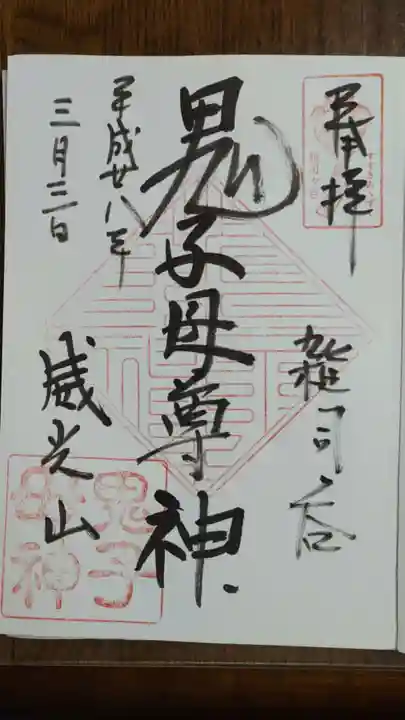 奉拝
雑司ヶ谷
鬼子母尊神
平成廿八年
三月三日
威光山
鬼子
母神